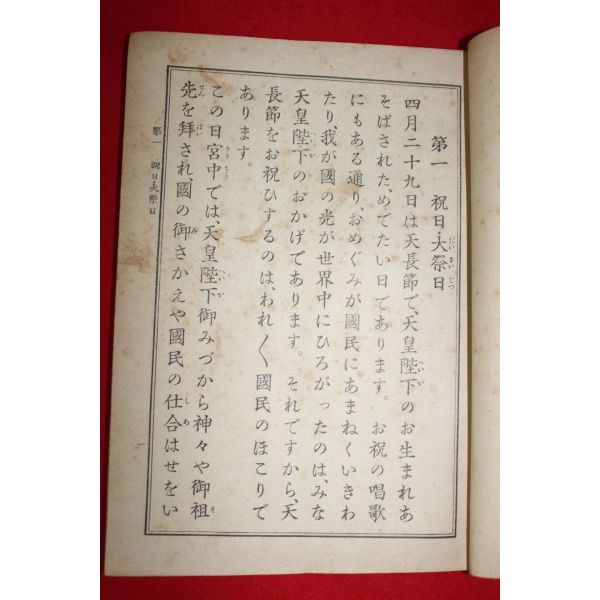 第一　祝日・大祭日
四月二十九日は天長節で、天皇陛下のお生まれあ
そばされた、めでたい日であります。お祝の唱歌
にもある通り、おめぐみが國民にあまねくいきわ
たり、我が國の光が世界中にひろがったのは、みな
天皇陛下のおかげであります。それですから、天
長節をお祝ひするのは、われ〳〵國民のほこりで
あります。
この日宮中では、天皇陛下御みづから神々や御祖
先を拜され、國の御さかえや國民の仕合はせをい
第一　祝日・大祭日